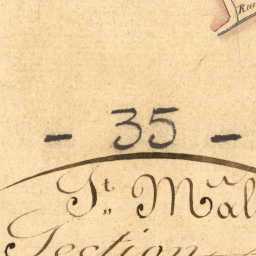 - 35 -
St. Mal
Section